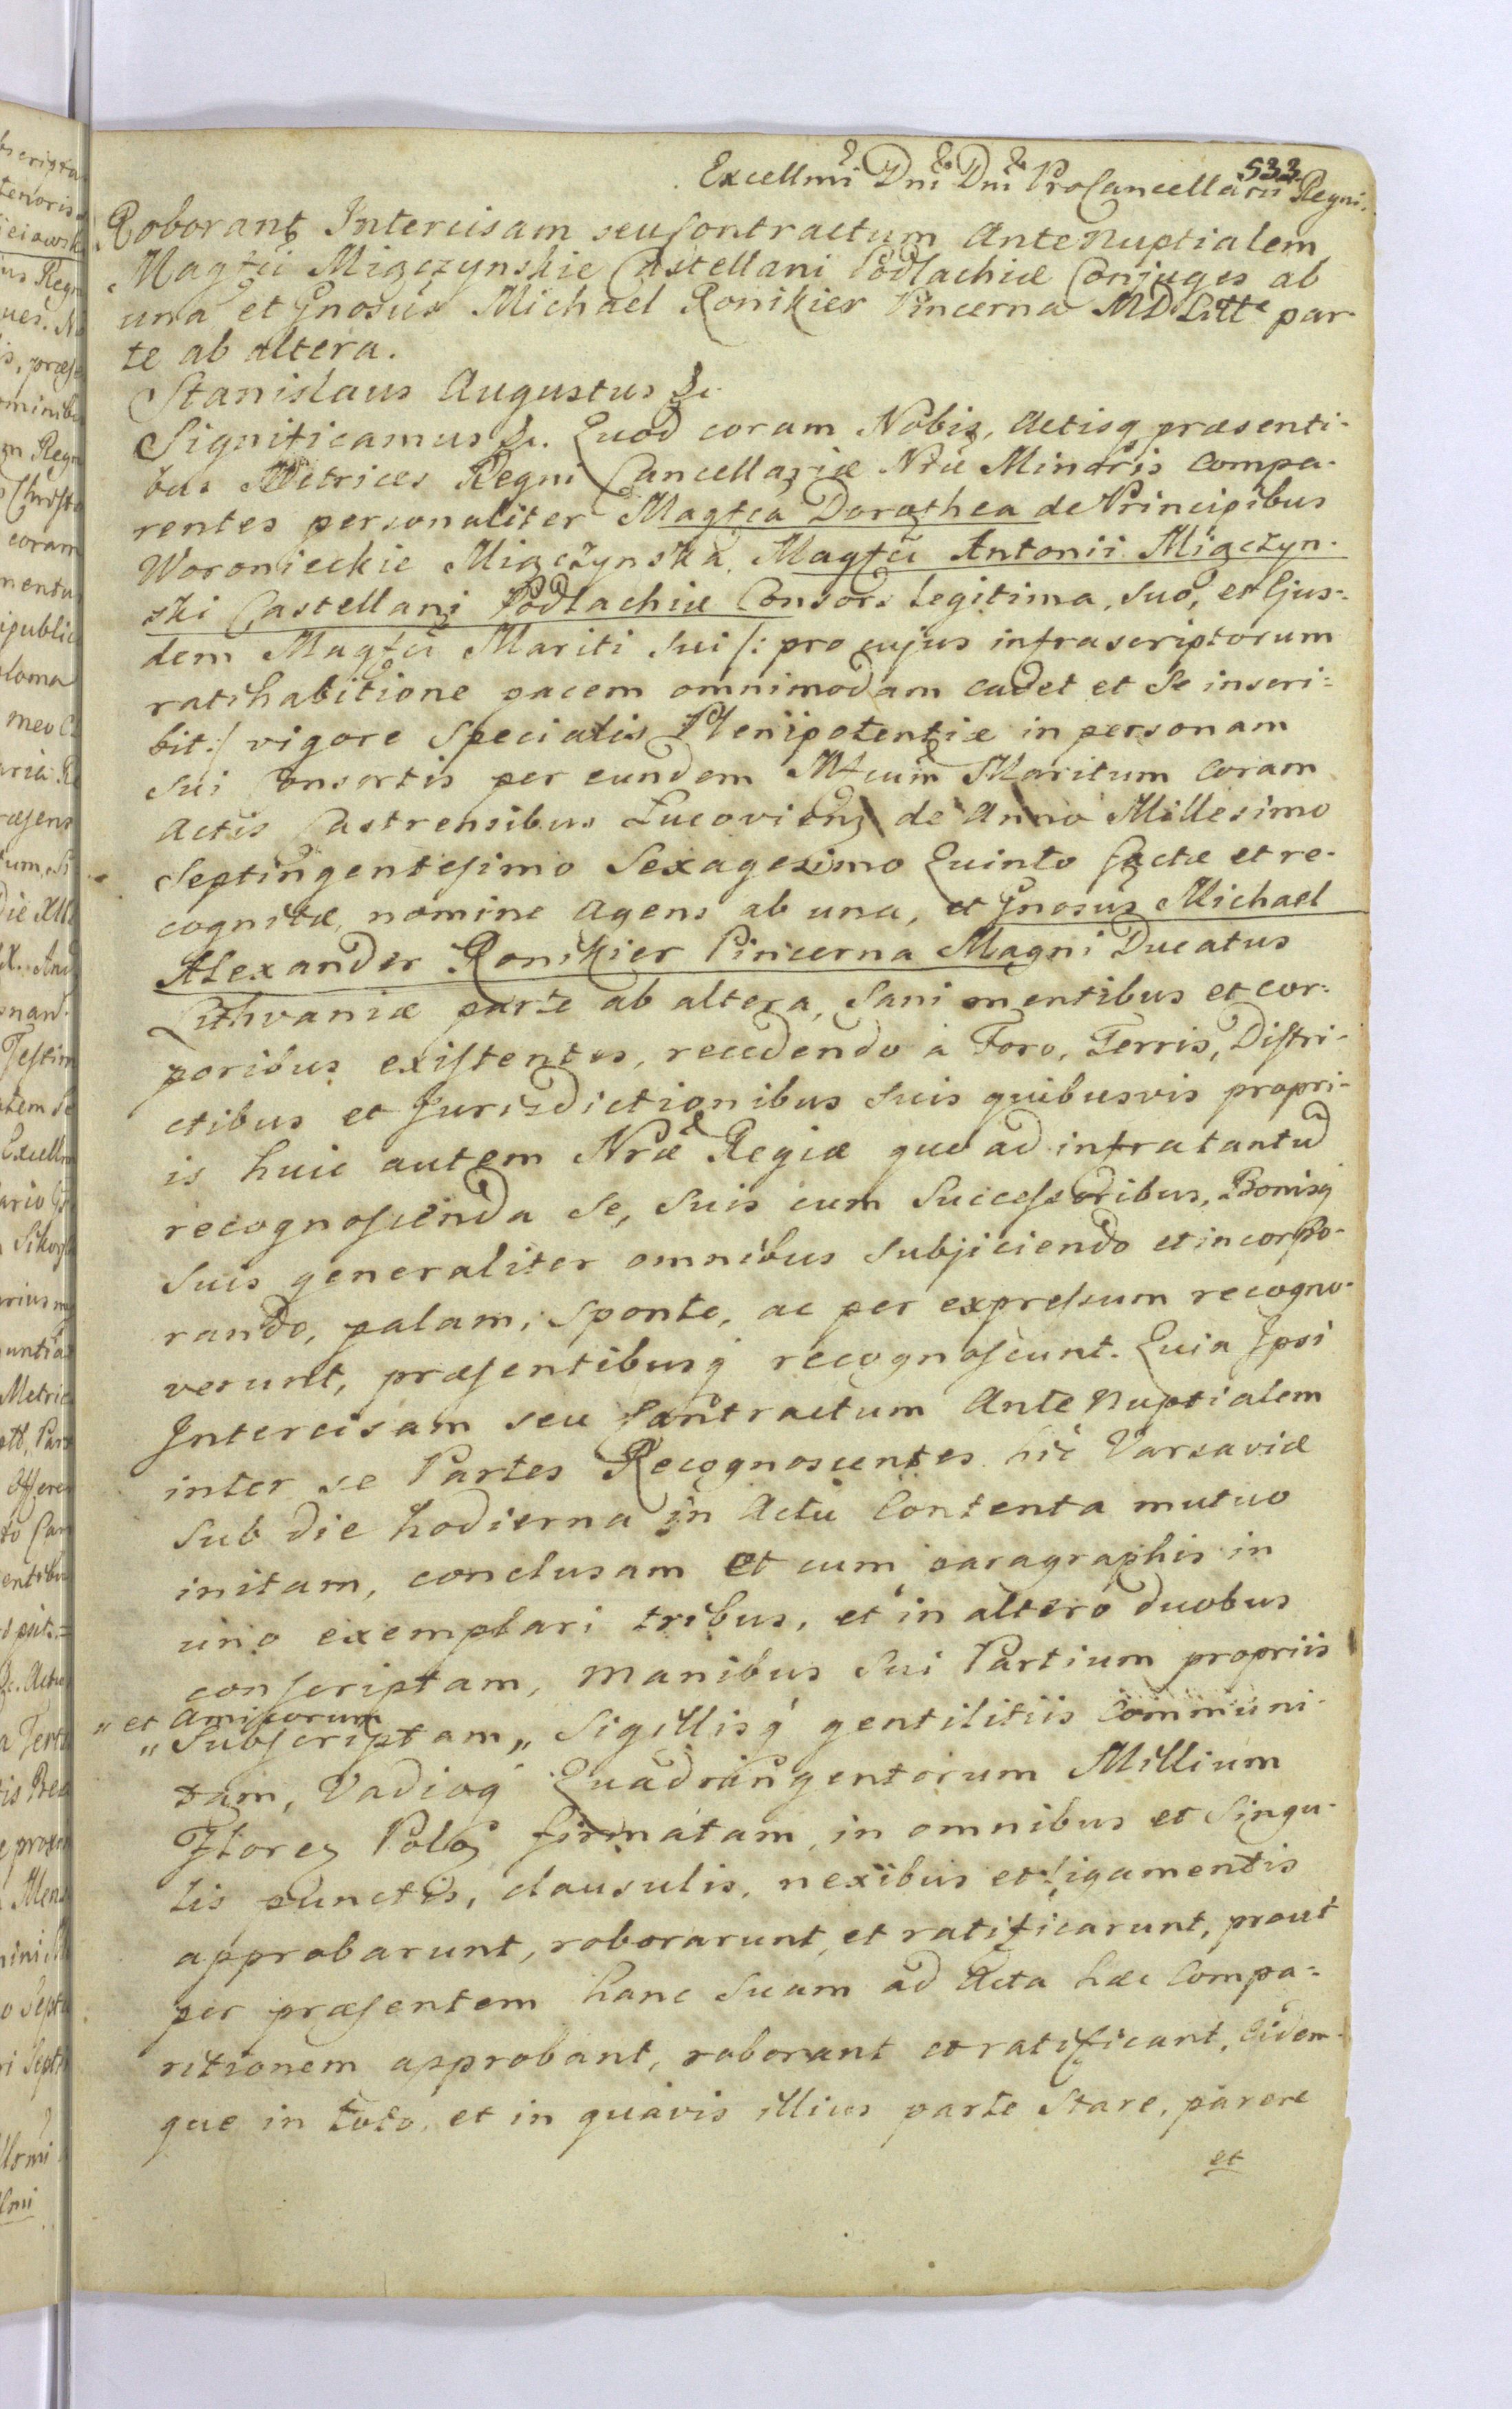 533.
Excellmi Dni Dni ProCancellarii Regni.
Roborant Intercisam seu Contractum AnteNuptialem
Magfci Miączynskie Castellani Podlachiæ Conjuges ab
una et Gnosus Michael Ronikier Pincerna MD Litt. par-
te ab altera.
Stanislaus Augustus &c.
Significamus &c. Quod coram Nobis, Actisq præsenti-
bus Metrices Regni Cancellariæ Nræ Minoris compa-
rentes personaliter Magfca Dorothea de Principibus
Woronieckie Miączynska, Magfci Antonii Miączyn-
ski Castellani Podlachiæ Consors Legitima, suo, et Ejus-
dem Magfci Mariti sui /: pro cujus infrascriptorum
ratihabitione pacem omnimodam cadet et se inscri-
bit :/ vigore Specialis Plenipotentiæ in personam
sui Consortis per eundem Mfcum Maritum coram
Actis Castrensibus Lucovien de Anno Millesimo
Septingentesimo Sexagesimo Quinto factæ et re-
cognitæ, nomine agens ab una, et Gnosus Michael
Alexander Ronikier Pincerna Magni Ducatus
Lithvaniæ parte ab altera, Sani mentibus et cor-
poribus existentes, recedendo a Foro, Terris, Distri-
ctibus et Jurisdictionibus suis quibusvis propri-
is huic autem Nræ Regiæ quo ad infra tantũ
recognoscenda se, suis cum Successoribus, Bonisq
suis generaliter omnibus subjiciendo et incorpo-
rando, palam, sponte, ac per expressum recogno-
verunt, præsentibusq recognoscunt. Quia Ipsi
Intercisam seu Contractum Ante Nuptialem
inter se Partes Recognoscentes hic Varsaviæ
sub die hodierna in Actu Contenta mutuo
initam, conclusam et cum paragraphis in
uno exemplari tribus, et in altero duobus
conscriptam, manibus sui Partium propriis
„ et Amicorum
„ Subscriptam „ Sigillisq gentilitiis Communi-
tam, Vadioq Quadringentorum Millium
Floren Polon firmatam, in omnibus et Singu-
lis punctis, clausulis, nexibus et ligamentis
approbarunt, roborarunt, et ratificarunt, prout
per præsentem hanc suam ad Acta hæc Compa-
ritionem approbant, roborant et ratificant, Eidem-
que in toto, et in quavis illius parte Stare, parere
et